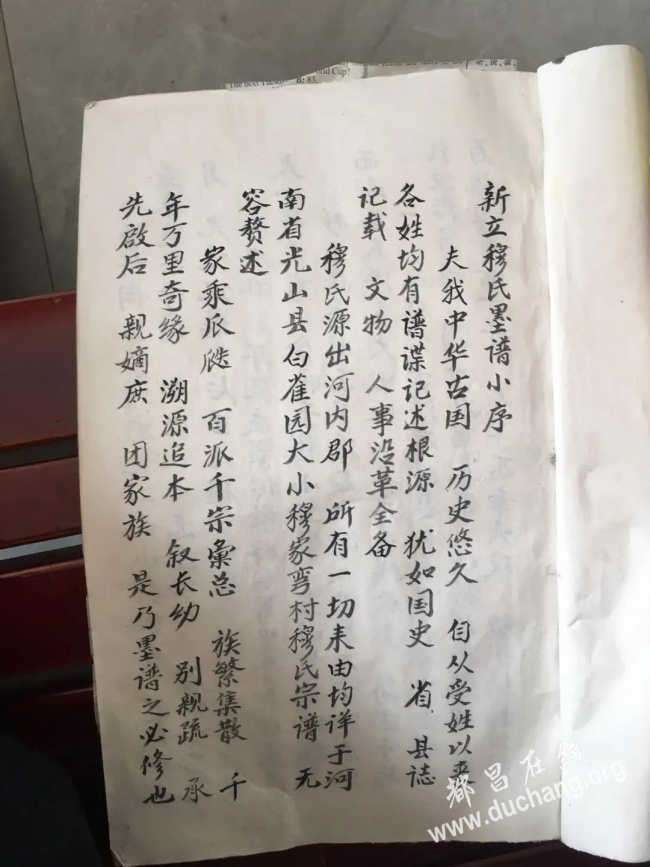 新立穆氏墨谱小序
夫我中华古国 历史悠久 自从受姓以来
各姓均有谱谍记述根源 犹如国史 省 县誌
记载 文物 人事沿革全备
穆氏源出河内郡 所有一切来由均详于河
南省光山县白雀园大小穆家弯村穆氏宗谱 无
容赘述
家乘瓜瓞 百派千宗彙总 族繁集散 千
年万里奇缘 溯源追本 叙长幼 别親疏 承
先啟后 親嫡庶 团家族 是乃墨谱之必修也
The next Tuesday B: 83.
World Cup?
都昌在线
www.duchang.org